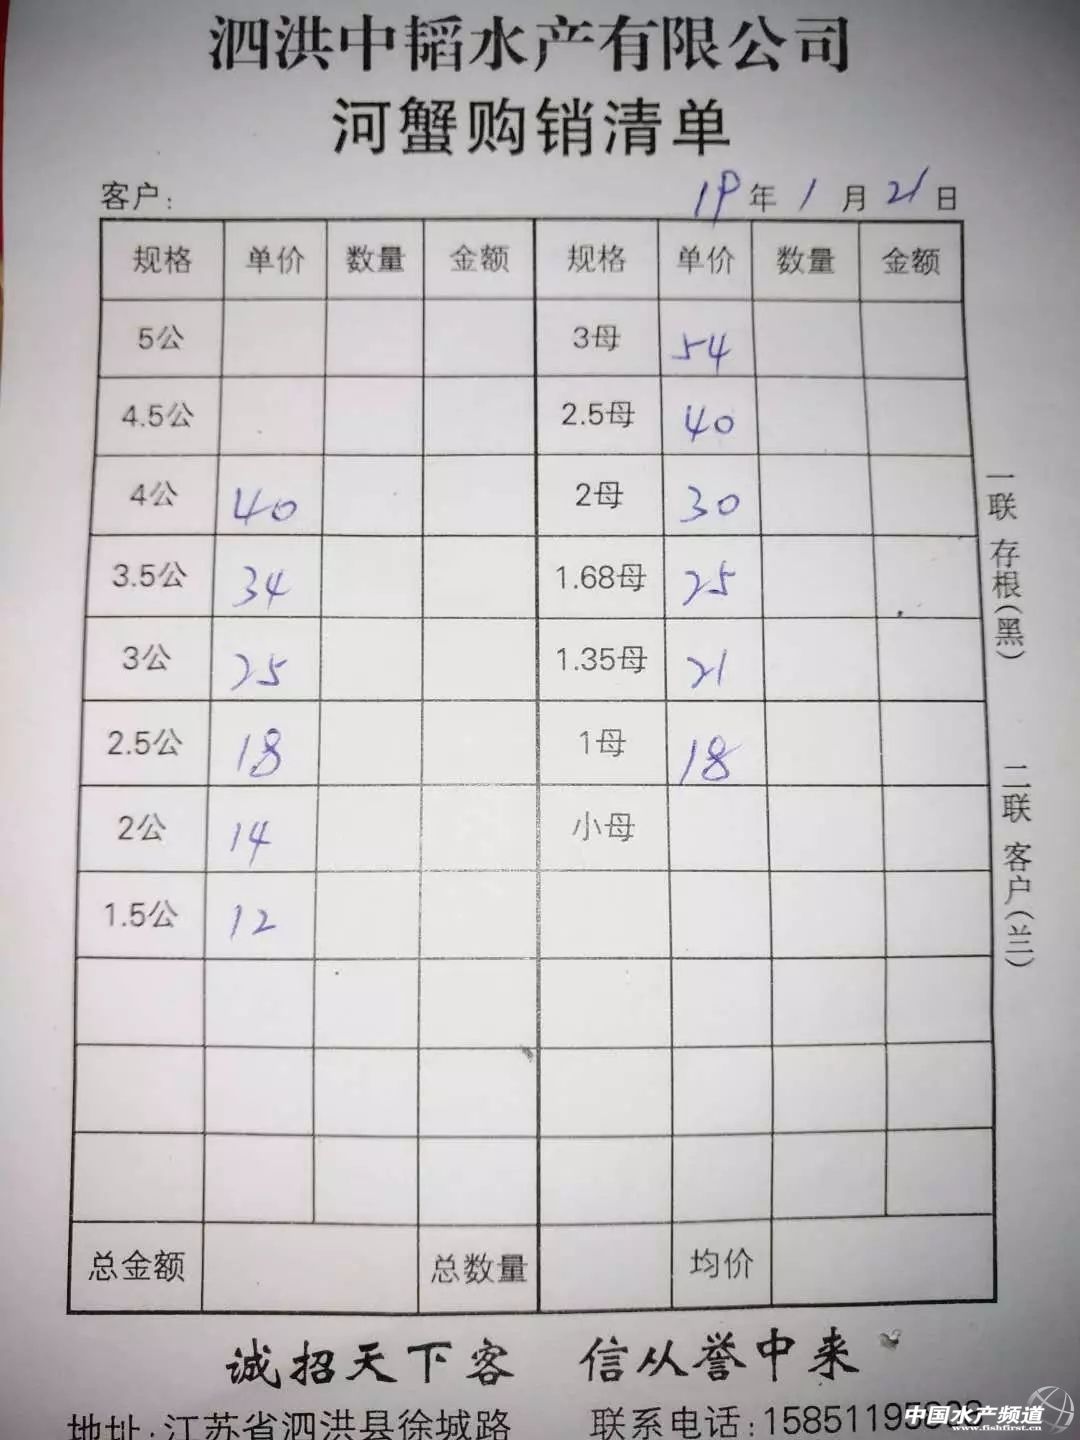 泗洪中韬水产有限公司
河蟹购销清单
客户: 19年1月21日
规格 单价 数量 金额 规格 单价 数量 金额
5公 3母 54
4.5公 2.5母 40
4公 40 2母 30
3.5公 34 1.68母 25
3公 25 1.35母 21
2.5公 18 1母 18
2公 14 小母
1.5公 12
总金额 总数量 均价
一联 存根(黑) 二联 客户(兰)
诚招天下客 信从誉中来
地址:江苏省泗洪县徐城路 联系电话:15851195
中国水产频道
www.fishfirst.cn